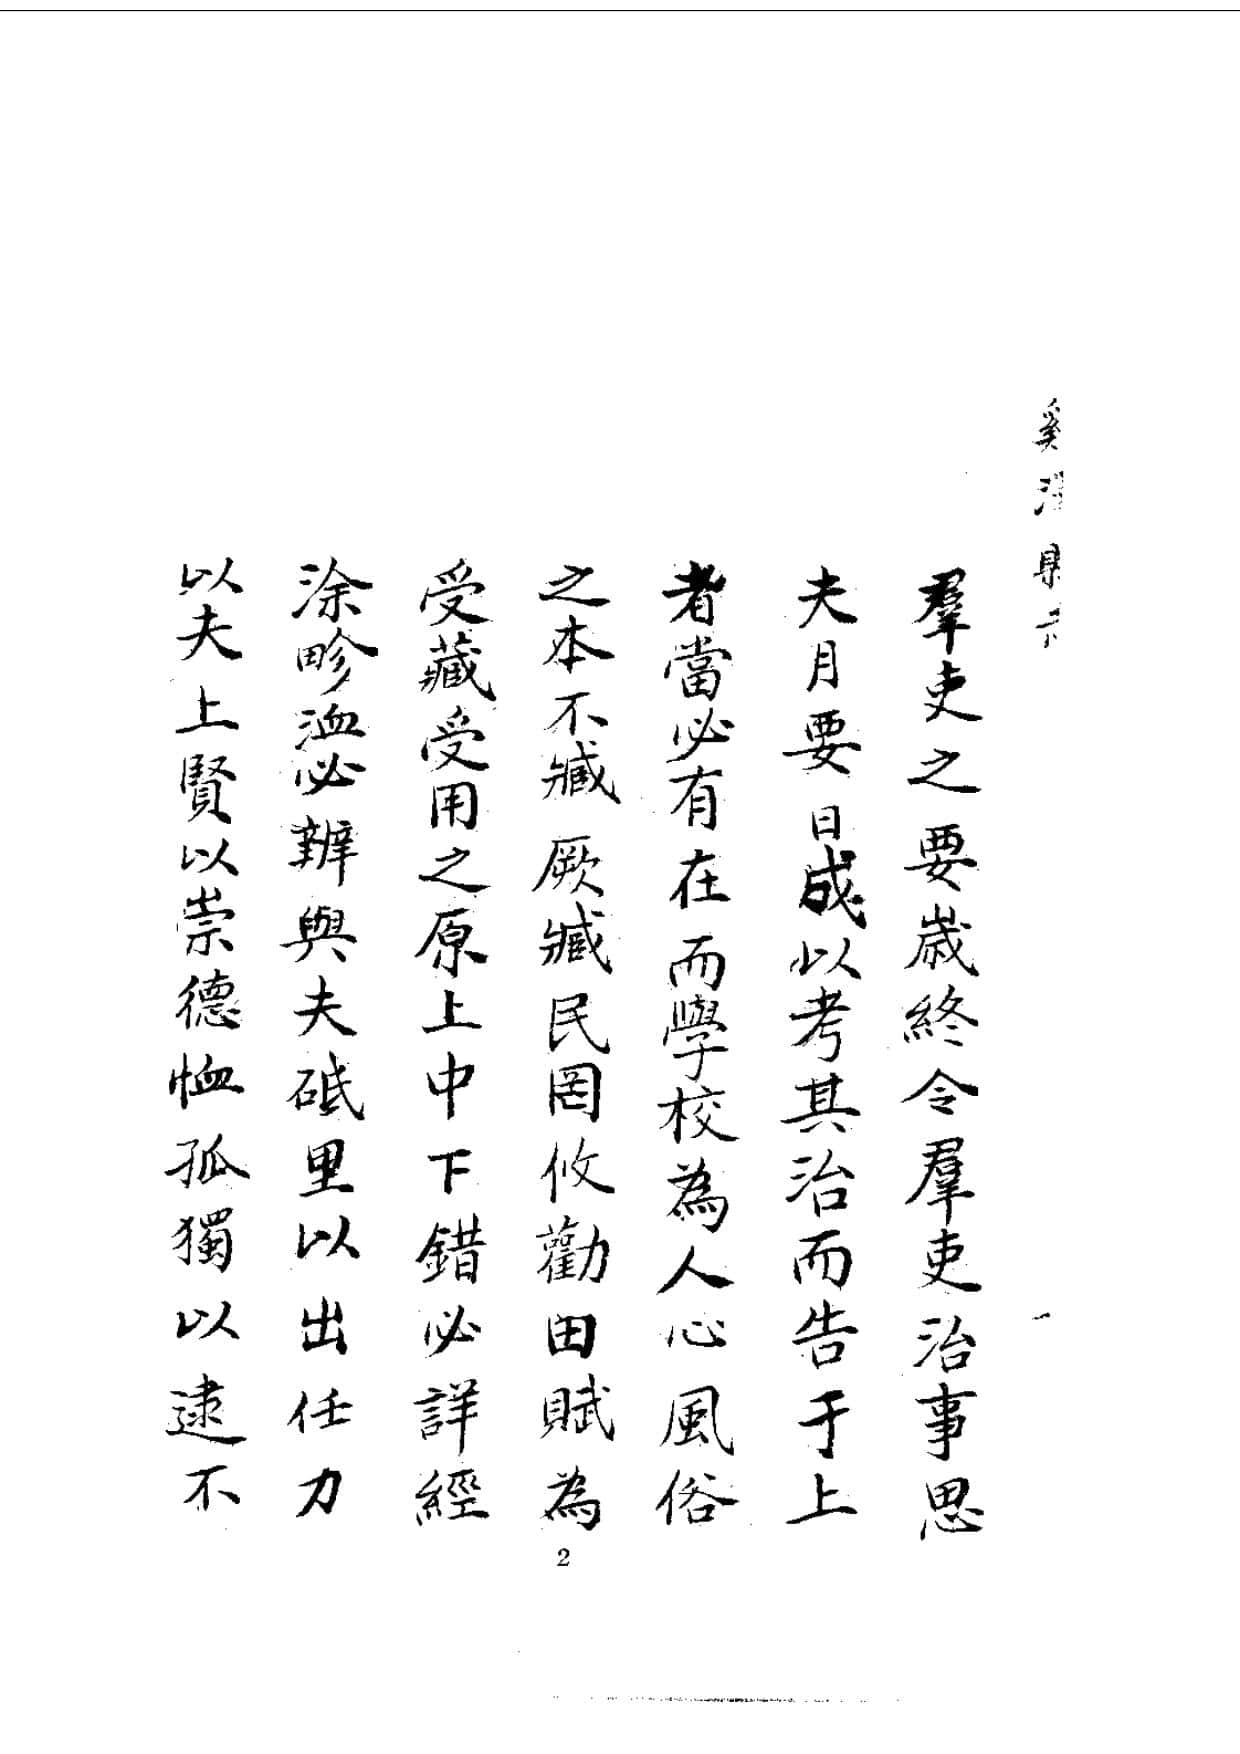 羣吏之要歲終令羣吏治事思
夫月要日成以考其治而告于上
者當必有在而學校為人心風俗
之本不臧厥臧民罔攸勸田賦為
受藏受用之原上中下錯必詳經
涂畛洫必辦與夫砥里以出任力
以夫上賢以崇德恤孤獨以逮不
2